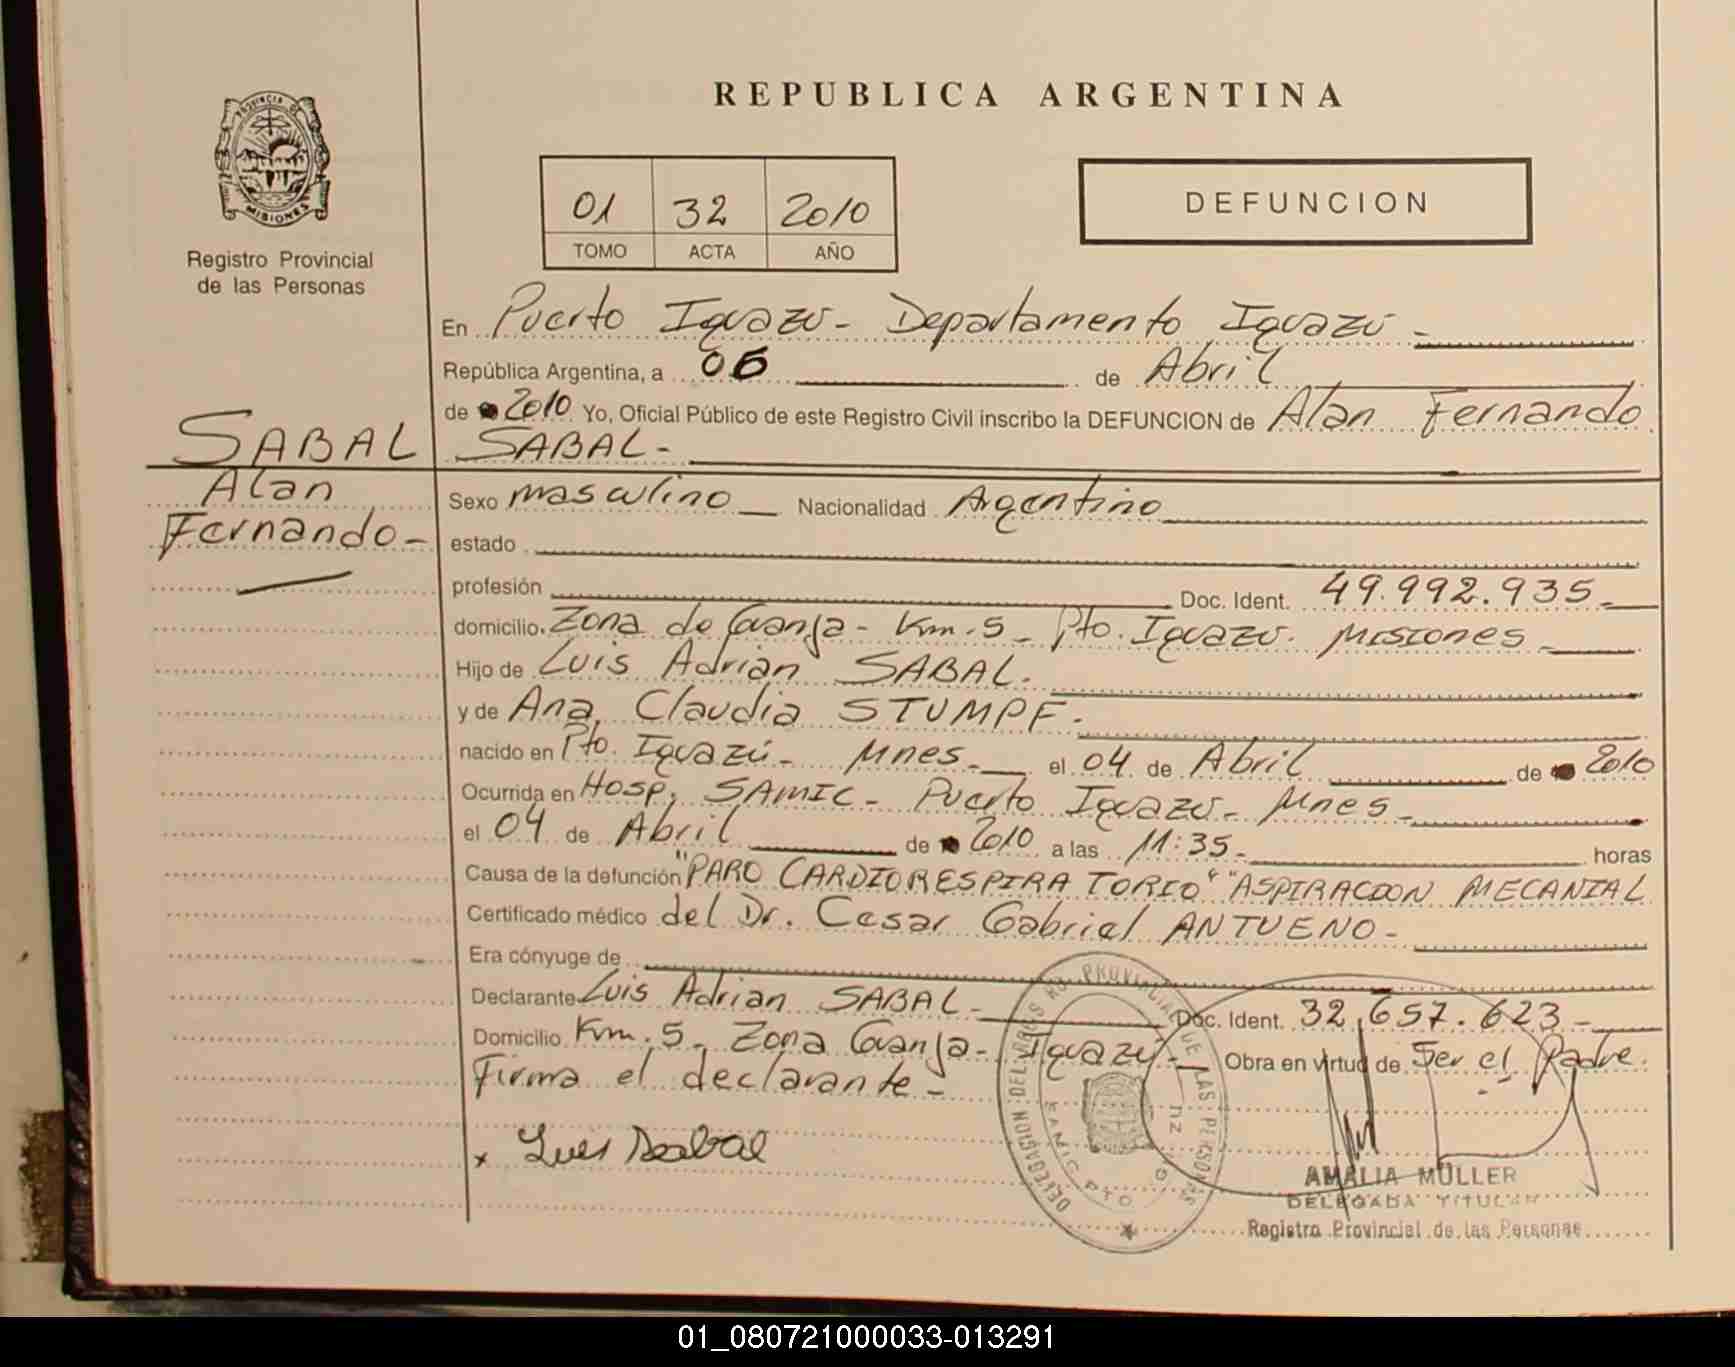 REPUBLICA ARGENTINA
PROVINCIA DE
MISIONES
Registro Provincial
de las Personas
01 32 2010
TOMO ACTA AÑO
DEFUNCION
En Puerto Iguazú - Departamento Iguazú -
República Argentina, a 06 de Abril
de 2010 Yo, Oficial Público de este Registro Civil inscribo la DEFUNCION de Alan Fernando
SABAL -
SABAL
Alan
Fernando -
Sexo masculino Nacionalidad Argentino
estado
profesión Doc. Ident. 49.992.935 -
domicilio Zona de Granja - Km. 5 - Pto. Iguazú. MISIONES -
Hijo de Luis Adrian SABAL.
y de Ana Claudia STUMPF.
nacido en Pto. Iguazú - Mnes - el 04 de Abril de 2010
Ocurrida en Hosp. SAMIC - Puerto Iguazú - Mnes -
el 04 de Abril de 2010 a las 11:35 - horas
Causa de la defunción "PARO CARDIORESPIRATORIO" "ASPIRACION MECANIAL
Certificado médico del Dr. Cesar Gabriel ANTUENO -
Era cónyuge de
Declarante Luis Adrian SABAL - Doc. Ident. 32.657.623 -
Domicilio Km. 5 - Zona Granja - Iguazú - Obra en virtud de Ser el Padre.
Firma el declarante -
x Luis Sabal
DELEGACION DEL REG. PROVINCIAL DE LAS PERSONAS
SAMIC PTO
AMALIA MÜLLER
DELEGADA TITULAR
Registro Provincial de las Personas
01_080721000033-013291